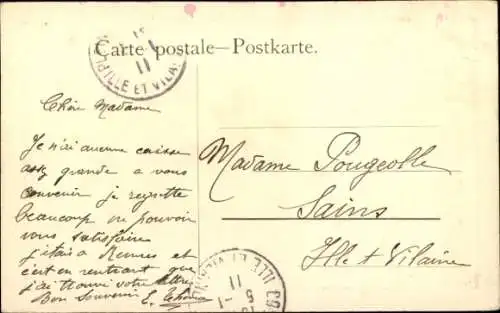 Carte postale—Postkarte.
ILLE ET VILAINE
11
Chère Madame
Je n'ai aucune caisse
assez grande a vous
convenir je regrette
beaucoup ne pouvoir
vous satisfaire
j'étais a Rennes et
c'est en rentrant que
j'ai trouvé votre lettre
Bon Souvenir E.
Madame Pougeolle
Sains
Ille & Vilaine
ILLE ET VILAINE
11
5 - 1